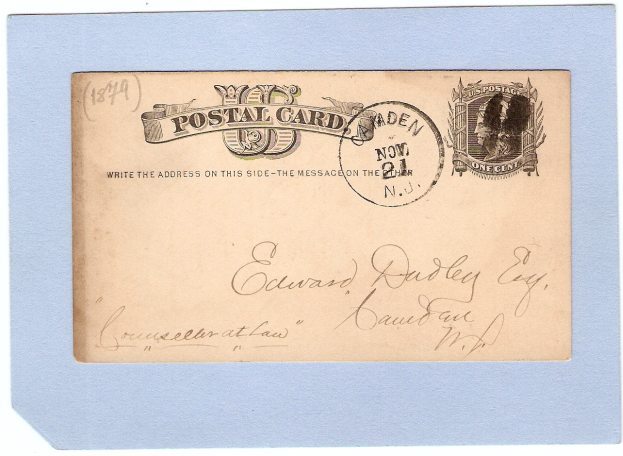 (1879)
U.S. POSTAGE
US
POSTAL CARD
ONE CENT
CAMDEN
NOV
21
N.J.
WRITE THE ADDRESS ON THIS SIDE–THE MESSAGE ON THE OTHER
Edward Dudley Esq.
Camden
N.J.
"Counseller at Law"